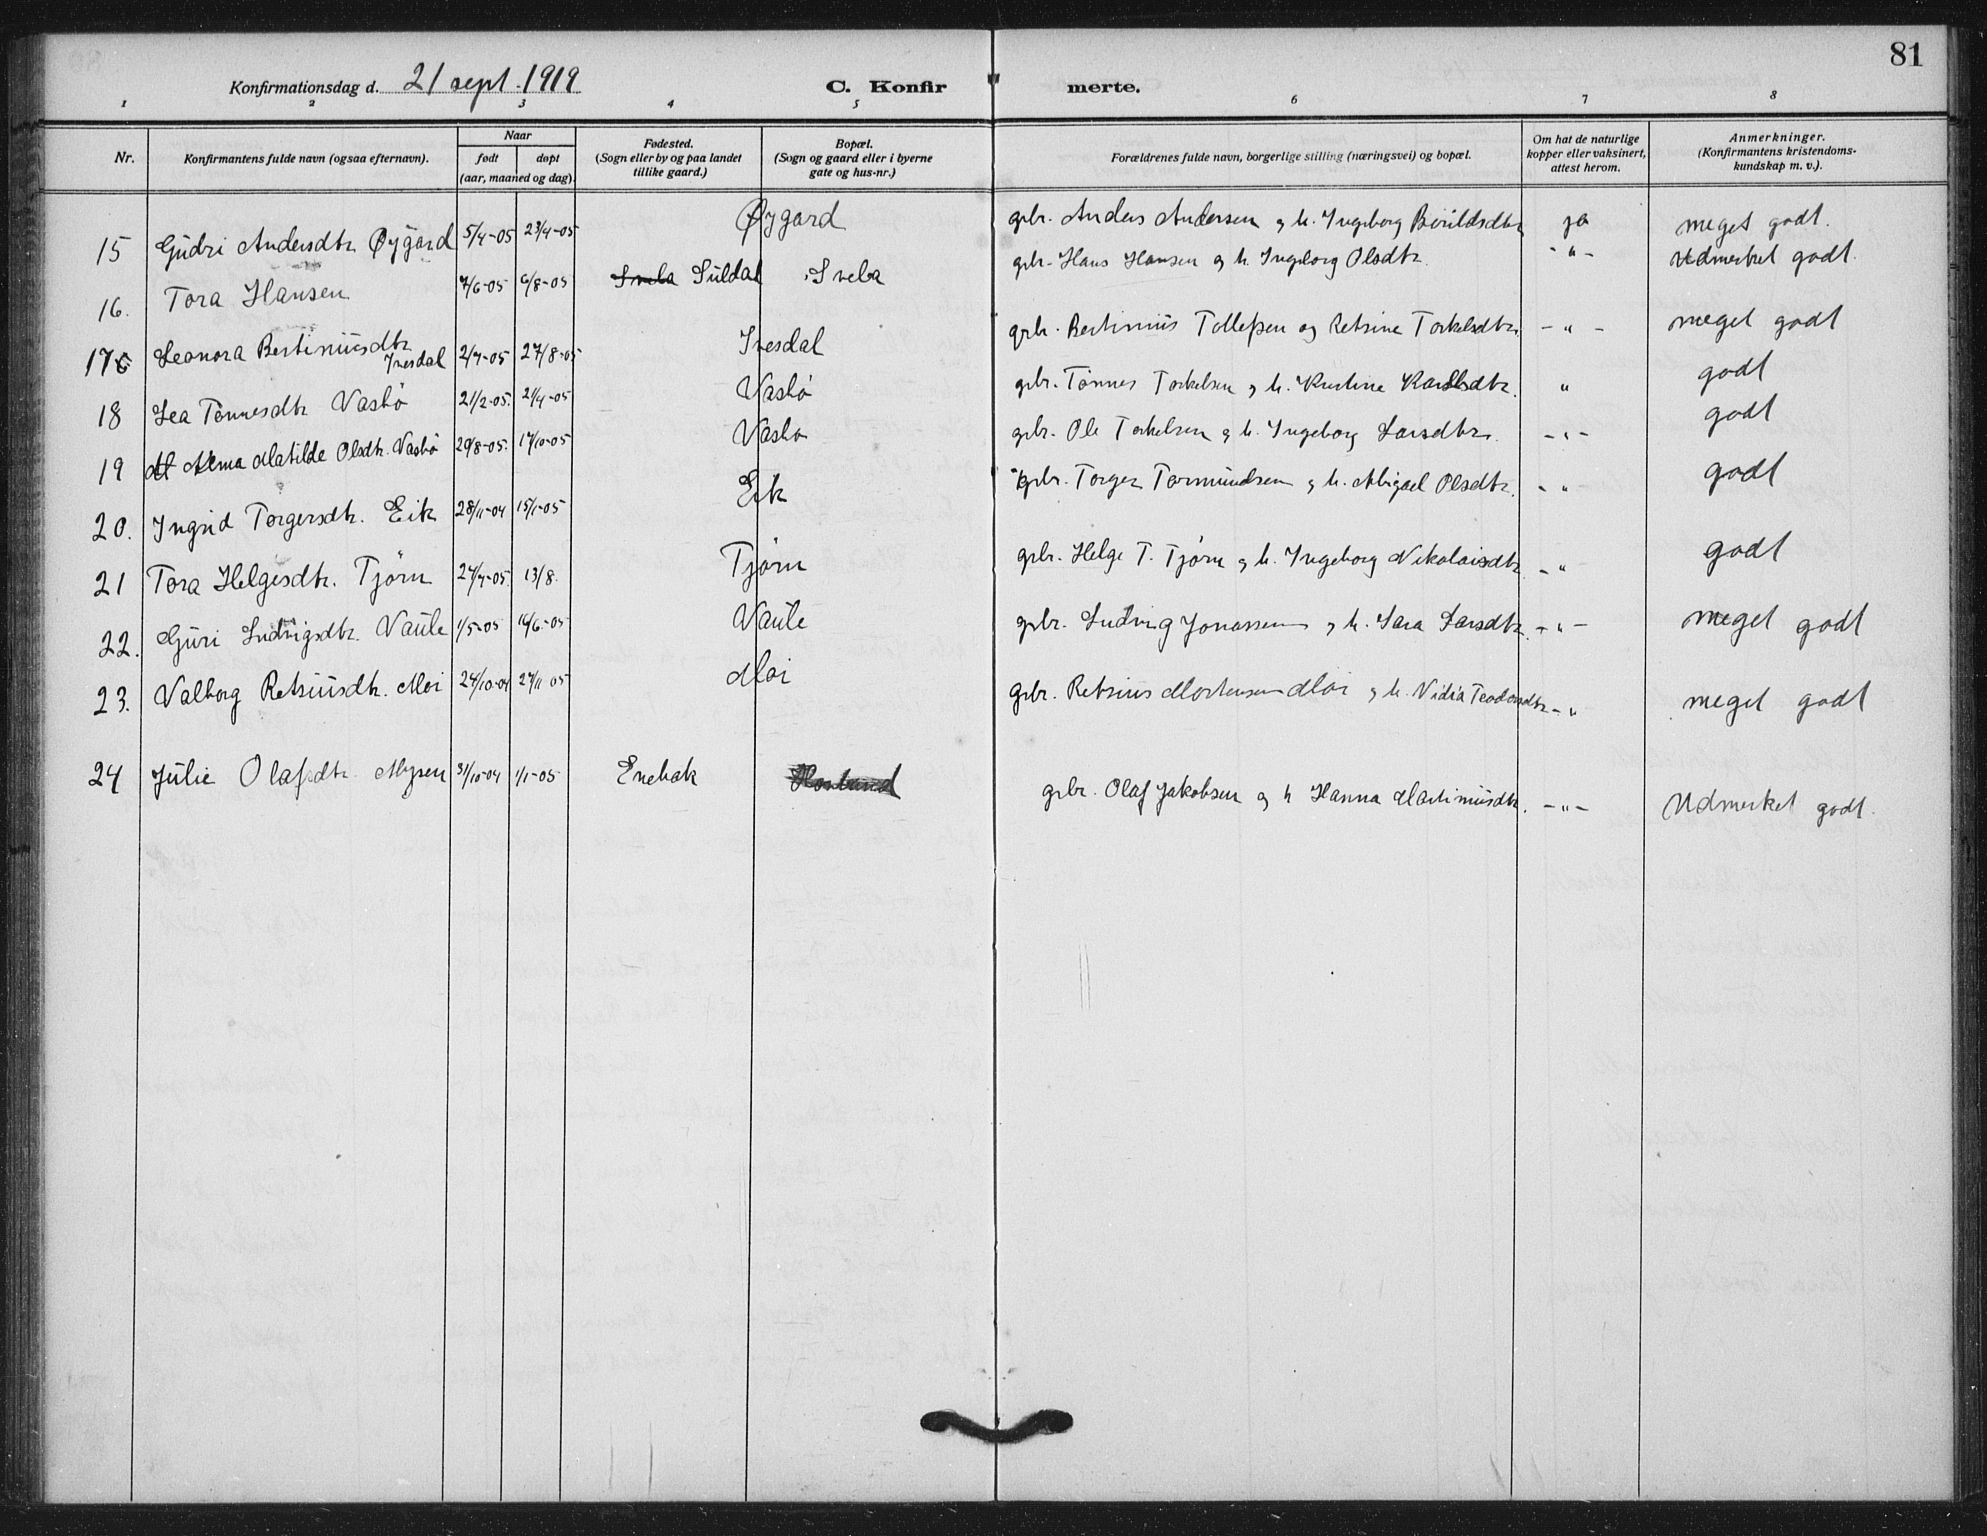 81
Konfirmationsdag d. 21 sept. 1919 C. Konfirmerte.
1 2 3 4 5 6 7 8
Nr. Konfirmantens fulde navn (ogsaa efternavn). Naar født døpt (aar, maaned og dag). Fødested. (Sogn eller by og paa landet tillike gaard.) Bopæl. (Sogn og gaard eller i byerne gate og hus-nr.) Forældrenes fulde navn, borgerlige stilling (næringsvei) og bopæl. Om hat de naturlige kopper eller vaksinert, attest herom. Anmerkninger. (Konfirmantens kristendoms-kundskap m. v.).
15 Gudri Andersdtr. Øygard 5/4-05 23/4-05 Øygard grbr. Anders Andersen og h. Ingeborg Bårildsdtr. ja meget godt.
16. Tora Hansen 7/6-05 6/8-05 Suldal Sveba grbr. Hans Hansen og h. Ingeborg Olsdtr. -"- Udmerket godt.
17 Leonora Bertiniusdtr. Ivesdal 2/7-05 27/8-05 Ivesdal grbr. Bertinius Tollefsen og Retsine Torkelsdtr. -"- meget godt
18 Lea Tønnesdtr. Vasbø 21/2-05. 2/4-05 Vasbø grbr. Tønnes Torkelsen og h. Kristine Karlsdtr. " godt
19 Alma Matilde Olsdtr. Vasbø 29/8-05. 17/10-05 Vasbø grbr. Ole Torkelsen og h. Ingeborg Larsdtr. -"- godt
20. Ingrid Torgersdtr. Eik 28/11-04 15/1-05 Eik grbr. Torger Tormundsen og h. Abigael Olsdtr. -" godt
21 Tora Helgesdtr. Tjørn 27/7-05. 13/8. Tjørn grbr. Helge T. Tjørn og h. Ingeborg Nikolaisdtr. -" godt
22. Guri Ludvigsdtr. Vaule 1/5-05 /6-05 Vaule grbr. Ludvig Jonassen og h. Sara Larsdtr. -"- meget godt
23. Valborg Retsiusdtr. Moi 24/10-04 27/11 05 Moi grbr. Retsius Mortensen Moi og h. Vidia Teodorsdtr. -" meget godt
24 Julie Olafsdtr. Mysen 31/10-04 1/1-05 Enebak grbr. Olaf Jakobsen og h Hanna Martiniusdtr. -"- Udmerket godt.